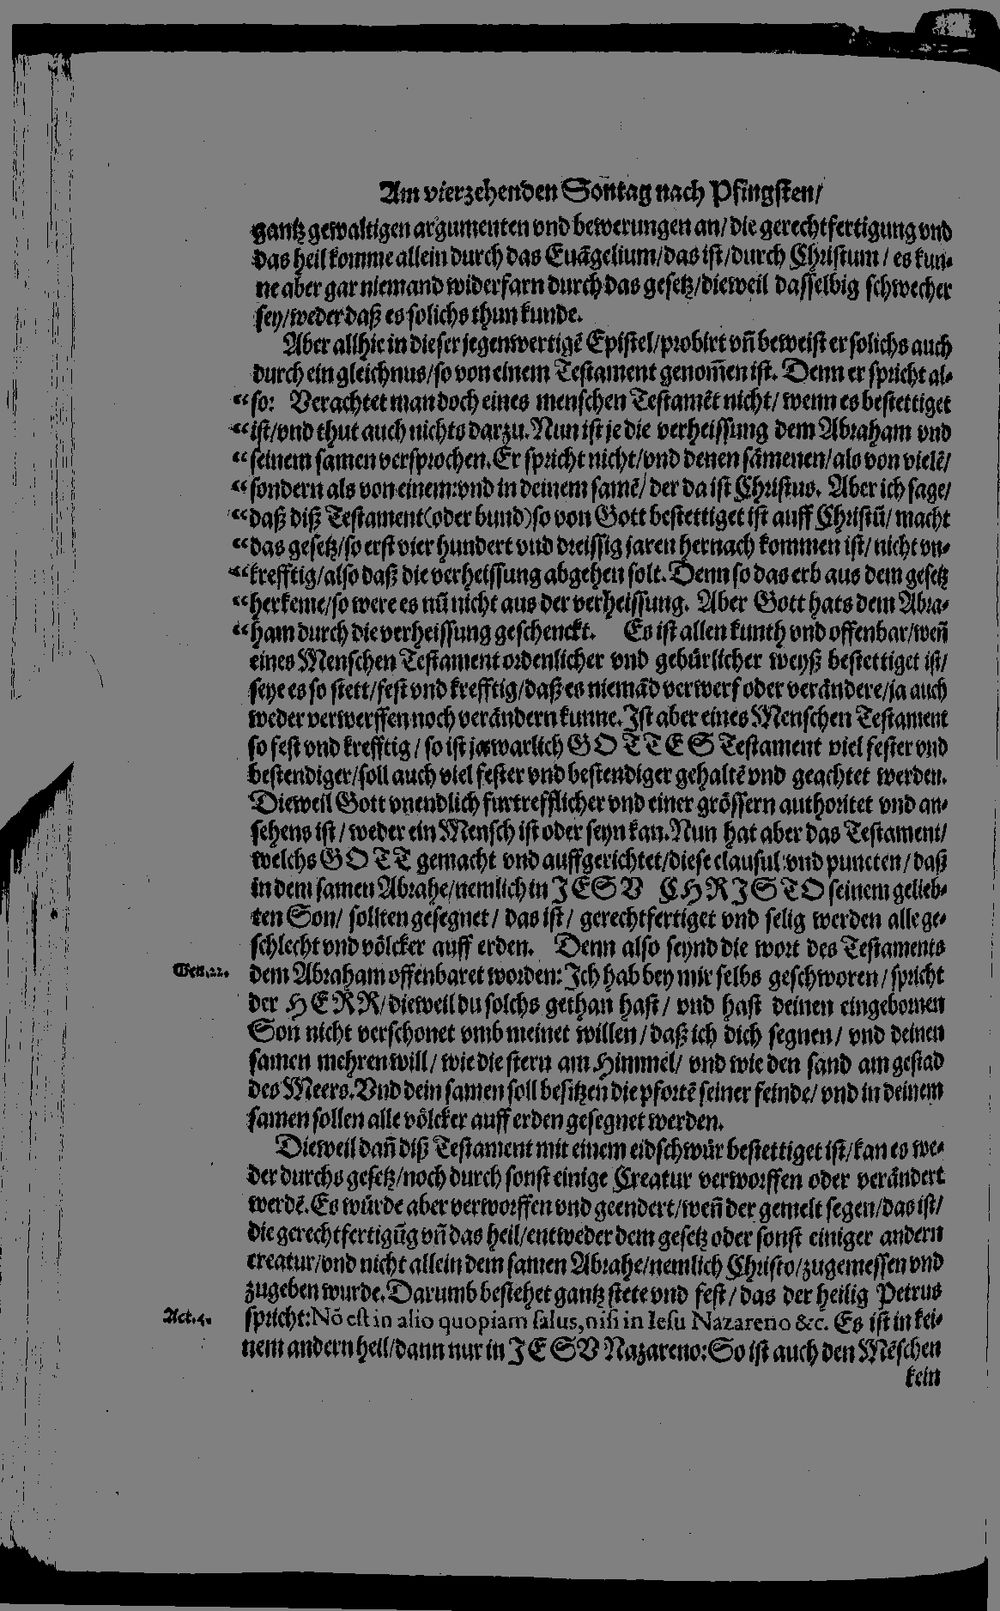 Am vierzehenden Soñtag nach Pfingsten/
gantz gewaltigen argumenten vnd bewerungen an/ die gerechtfertigung vnd
das heil komme allein durch das Euãgelium/das ist/durch Christum/ es kun-
ne aber gar niemand widerfarn durch das gesetz/dieweil dasselbig schwecher
sey/weder daß es solichs thun kunde.
Aber allhie in dieser jegenwertigẽ Epistel/probirt vñ beweist er solichs auch
durch ein gleichnus/so von einem Testament genom̃en ist. Denn er spricht al-
“ so: Verachtet man doch eines menschen Testamẽt nicht/ wenn es bestettiget
“ ist/vnd thut auch nichts darzu. Nun ist je die verheissung dem Abraham vnd
“ seinem samen versprochen. Er spricht nicht/vnd denen sämenen/als von vielẽ/
“ sondern als von einem:vnd in deinem samẽ/ der da ist Christus. Aber ich sage/
“ daß diß Testament(oder bund)so von Gott bestettiget ist auff Christũ/ macht
“ das gesetz/so erst vier hundert vnd dreissig jaren hernach kommen ist/ nicht vn-
“ krefftig/also daß die verheissung abgehen solt. Denn so das erb aus dem gesetz
“ herkeme/so were es nũ nicht aus der verheissung. Aber Gott hats dem Abra-
“ ham durch die verheissung geschenckt. Es ist allen kunth vnd offenbar/weñ
eines Menschen Testament ordenlicher vnd gebürlicher weyß bestettiget ist/
seye es so stett/fest vnd krefftig/daß es niemãd verwerf oder verändere/ja auch
weder verwerffen noch verändern kunne. Ist aber eines Menschen Testament
so fest vnd krefftig/ so ist ja warlich GOTTES Testament viel fester vnd
bestendiger/soll auch viel fester vnd bestendiger gehaltẽ vnd geachtet werden.
Dieweil Gott vnendlich furtrefflicher vnd einer grössern authoritet vnd an-
sehens ist/ weder ein Mensch ist oder seyn kan. Nun hat aber das Testament/
welchs GOTT gemacht vnd auffgerichtet/diese clausul vnd puncten/ daß
in dem samen Abrahe/nemlich in JESV CHRISTO seinem gelieb-
ten Son/ sollten gesegnet/ das ist/ gerechtfertiget vnd selig werden alle ge-
schlecht vnd völcker auff erden. Denn also seynd die wort des Testaments
Gen.22. dem Abraham offenbaret worden: Ich hab bey mir selbs geschworen/ spricht
der HERR/dieweil du solchs gethan hast/ vnd hast deinen eingebornen
Son nicht verschonet vmb meinet willen/ daß ich dich segnen/ vnd deinen
samen mehren will/ wie die stern am Himmel/ vnd wie den sand am gestad
des Meers. Vnd dein samen soll besitzen die pfortẽ seiner feinde/ vnd in deinem
samen sollen alle völcker auff erden gesegnet werden.
Dieweil dañ diß Testament mit einem eidschwür bestettiget ist/kan es we-
der durchs gesetz/noch durch sonst einige Creatur verworffen oder verändert
werdẽ. Es würde aber verworffen vnd geendert/weñ der gemelt segen/das ist/
die gerechtfertigũg vñ das heil/entweder dem gesetz oder sonst einiger andern
creatur/vnd nicht allein dem samen Abrahe/nemlich Christo/zugemessen vnd
zugeben wurde. Darumb bestehet gantz stete vnd fest/ das der heilig Petrus
Act.4. spricht:Nõ est in alio quopiam salus, nisi in Iesu Nazareno &c. Es ist in kei-
nem andern heil/dann nur in JESV Nazareno: So ist auch den Mẽschen
kein